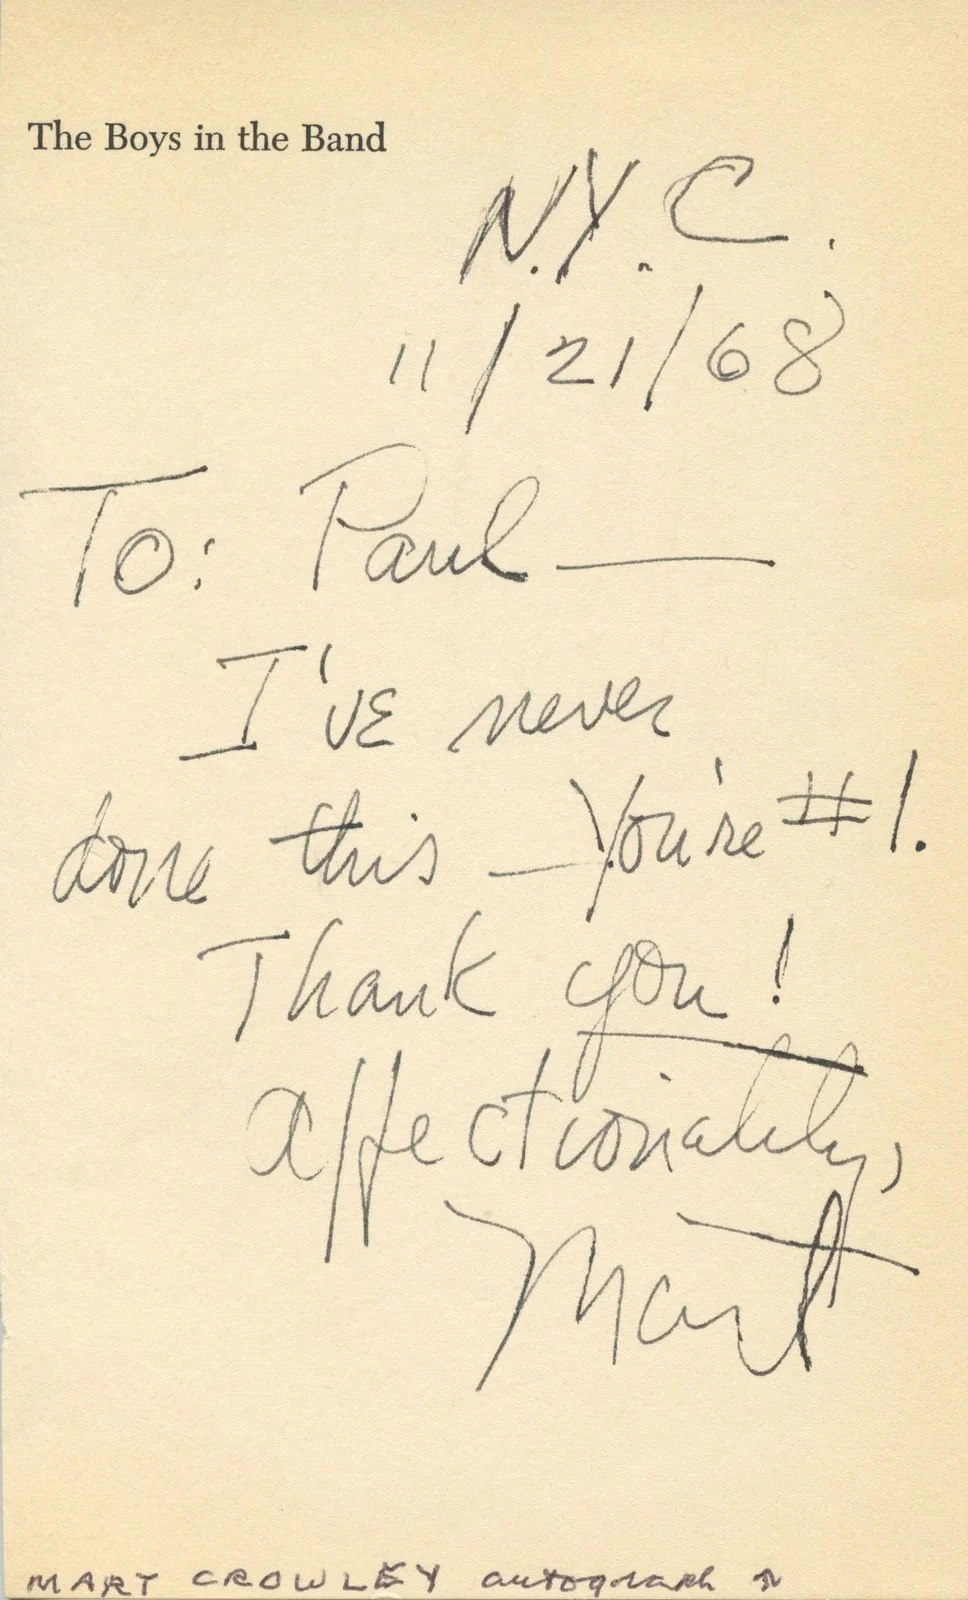 The Boys in the Band
N.Y.C.
11/21/68
To: Paul—
I've never
done this — You're #1.
Thank you!
Affectionately,
Mart
MART CROWLEY autograph ↑